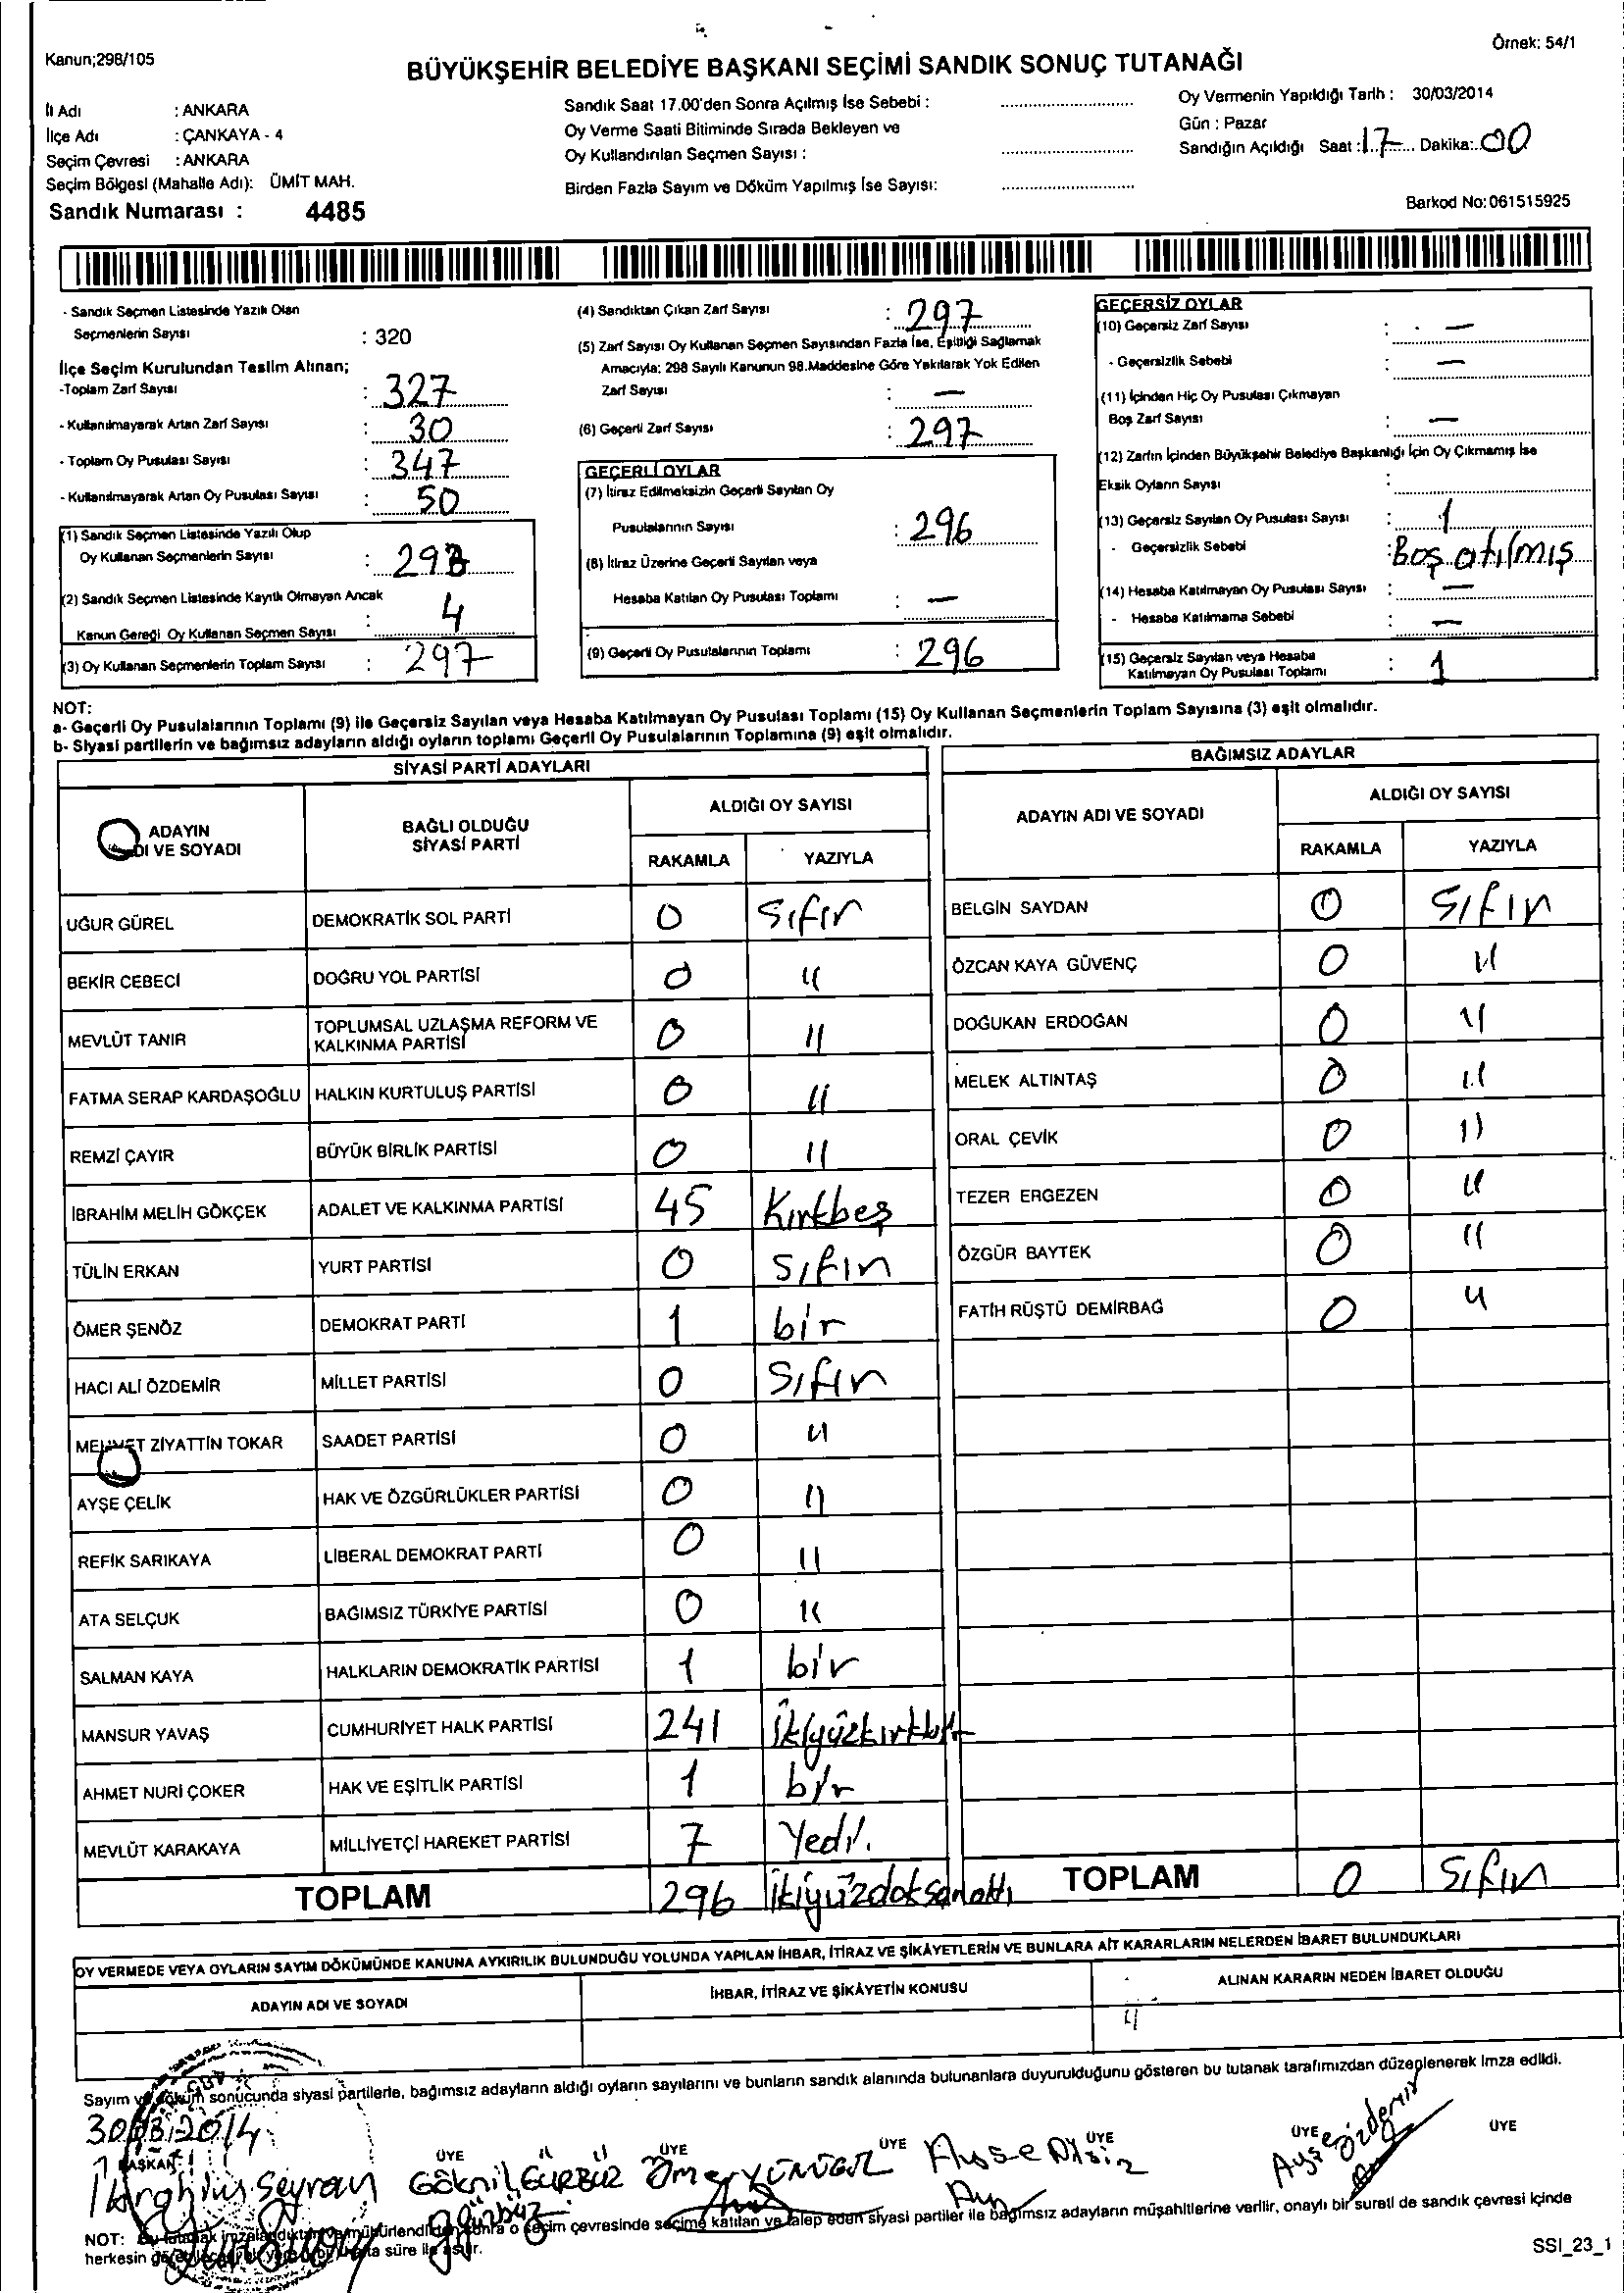 Kanun;298/105
Örnek: 54/1
BÜYÜKŞEHİR BELEDİYE BAŞKANI SEÇİMİ SANDIK SONUÇ TUTANAĞI
İl Adı : ANKARA
İlçe Adı : ÇANKAYA - 4
Seçim Çevresi : ANKARA
Seçim Bölgesi (Mahalle Adı): ÜMİT MAH.
Sandık Numarası : 4485
Sandık Saat 17.00'den Sonra Açılmış İse Sebebi :
Oy Verme Saati Bitiminde Sırada Bekleyen ve
Oy Kullandırılan Seçmen Sayısı :
Birden Fazla Sayım ve Döküm Yapılmış İse Sayısı:
Oy Vermenin Yapıldığı Tarih : 30/03/2014
Gün : Pazar
Sandığın Açıldığı Saat : 17 Dakika: 00
Barkod No:061515925
- Sandık Seçmen Listesinde Yazılı Olan
Seçmenlerin Sayısı : 320
İlçe Seçim Kurulundan Teslim Alınan;
-Toplam Zarf Sayısı : 327
- Kullanılmayarak Artan Zarf Sayısı : 30
- Toplam Oy Pusulası Sayısı : 347
- Kullanılmayarak Artan Oy Pusulası Sayısı : 50
(1) Sandık Seçmen Listesinde Yazılı Olup
Oy Kullanan Seçmenlerin Sayısı :
(2) Sandık Seçmen Listesinde Kayıtlı Olmayan Ancak
Kanun Gereği Oy Kullanan Seçmen Sayısı : 4
(3) Oy Kullanan Seçmenlerin Toplam Sayısı : 297
(4) Sandıktan Çıkan Zarf Sayısı : 297
(5) Zarf Sayısı Oy Kullanan Seçmen Sayısından Fazla İse, Eşitliği Sağlamak
Amacıyla; 298 Sayılı Kanunun 98.Maddesine Göre Yakılarak Yok Edilen
Zarf Sayısı : —
(6) Geçerli Zarf Sayısı : 297
GEÇERLİ OYLAR
(7) İtiraz Edilmeksizin Geçerli Sayılan Oy
Pusulalarının Sayısı : 296
(8) İtiraz Üzerine Geçerli Sayılan veya
Hesaba Katılan Oy Pusulası Toplamı : —
(9) Geçerli Oy Pusulalarının Toplamı : 296
GEÇERSİZ OYLAR
(10) Geçersiz Zarf Sayısı : —
- Geçersizlik Sebebi : —
(11) İçinden Hiç Oy Pusulası Çıkmayan
Boş Zarf Sayısı : —
(12) Zarfın İçinden Büyükşehir Belediye Başkanlığı İçin Oy Çıkmamış İse
Eksik Oyların Sayısı :
(13) Geçersiz Sayılan Oy Pusulası Sayısı : 1
- Geçersizlik Sebebi : Boş atılmış
(14) Hesaba Katılmayan Oy Pusulası Sayısı : —
- Hesaba Katılmama Sebebi : —
(15) Geçersiz Sayılan veya Hesaba
Katılmayan Oy Pusulası Toplamı : 1
NOT:
a- Geçerli Oy Pusulalarının Toplamı (9) ile Geçersiz Sayılan veya Hesaba Katılmayan Oy Pusulası Toplamı (15) Oy Kullanan Seçmenlerin Toplam Sayısına (3) eşit olmalıdır.
b- Siyasi partilerin ve bağımsız adayların aldığı oyların toplamı Geçerli Oy Pusulalarının Toplamına (9) eşit olmalıdır.
SİYASİ PARTİ ADAYLARI
ADAYIN
DI VE SOYADI
BAĞLI OLDUĞU
SİYASİ PARTİ
ALDIĞI OY SAYISI
RAKAMLA YAZIYLA
UĞUR GÜREL DEMOKRATİK SOL PARTİ 0 Sıfır
BEKİR CEBECİ DOĞRU YOL PARTİSİ 0 "
MEVLÜT TANIR TOPLUMSAL UZLAŞMA REFORM VE KALKINMA PARTİSİ 0 "
FATMA SERAP KARDAŞOĞLU HALKIN KURTULUŞ PARTİSİ 0 "
REMZİ ÇAYIR BÜYÜK BİRLİK PARTİSİ 0 "
İBRAHİM MELİH GÖKÇEK ADALET VE KALKINMA PARTİSİ 45 Kırkbeş
TÜLİN ERKAN YURT PARTİSİ 0 Sıfır
ÖMER ŞENÖZ DEMOKRAT PARTİ 1 bir
HACI ALİ ÖZDEMİR MİLLET PARTİSİ 0 Sıfır
MEHMET ZİYATTİN TOKAR SAADET PARTİSİ 0 "
AYŞE ÇELİK HAK VE ÖZGÜRLÜKLER PARTİSİ 0 "
REFİK SARIKAYA LİBERAL DEMOKRAT PARTİ 0 "
ATA SELÇUK BAĞIMSIZ TÜRKİYE PARTİSİ 0 "
SALMAN KAYA HALKLARIN DEMOKRATİK PARTİSİ 1 bir
MANSUR YAVAŞ CUMHURİYET HALK PARTİSİ 241
AHMET NURİ ÇOKER HAK VE EŞİTLİK PARTİSİ 1 bir
MEVLÜT KARAKAYA MİLLİYETÇİ HAREKET PARTİSİ 7 Yedi.
TOPLAM 296 İkiyüzdoksanaltı
BAĞIMSIZ ADAYLAR
ADAYIN ADI VE SOYADI
ALDIĞI OY SAYISI
RAKAMLA YAZIYLA
BELGİN SAYDAN 0 Sıfır
ÖZCAN KAYA GÜVENÇ 0 "
DOĞUKAN ERDOĞAN 0 "
MELEK ALTINTAŞ 0 "
ORAL ÇEVİK 0 "
TEZER ERGEZEN 0 "
ÖZGÜR BAYTEK 0 "
FATİH RÜŞTÜ DEMİRBAĞ 0 "
TOPLAM 0 Sıfır
OY VERMEDE VEYA OYLARIN SAYIM DÖKÜMÜNDE KANUNA AYKIRILIK BULUNDUĞU YOLUNDA YAPILAN İHBAR, İTİRAZ VE ŞİKÂYETLERİN VE BUNLARA AİT KARARLARIN NELERDEN İBARET BULUNDUKLARI
ADAYIN ADI VE SOYADI İHBAR, İTİRAZ VE ŞİKÂYETİN KONUSU ALINAN KARARIN NEDEN İBARET OLDUĞU
Sayım ve döküm sonucunda siyasi partilerle, bağımsız adayların aldığı oyların sayılarını ve bunların sandık alanında bulunanlara duyurulduğunu gösteren bu tutanak tarafımızdan düzenlenerek imza edildi.
30/03/2014
BAŞKAN ÜYE ÜYE ÜYE ÜYE ÜYE ÜYE
Seyran Göknil GÜRBÜZ Ömer Ayşe Ayşe Özdemir
ggürbüz
NOT: Bu tutanak imzalandıktan ve mühürlendikten sonra o seçim çevresinde seçime katılan ve talep eden siyasi partiler ile bağımsız adayların müşahitlerine verilir, onaylı bir sureti de sandık çevresi içinde
herkesin süre ile asılır.
SSI_23_1